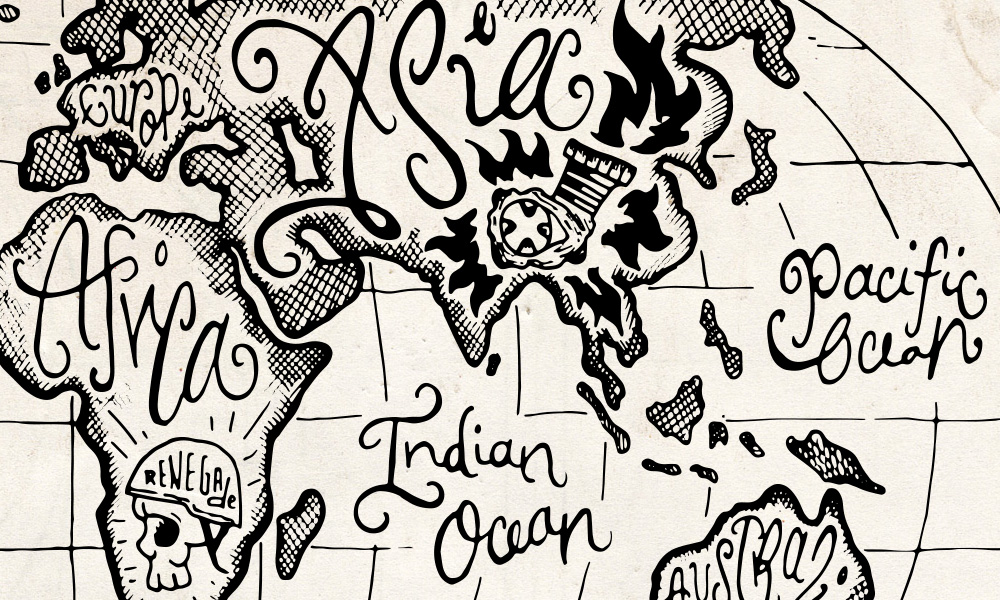 Asia
Europe
Africa
Pacific
Ocean
Indian
Ocean
RENEGAde